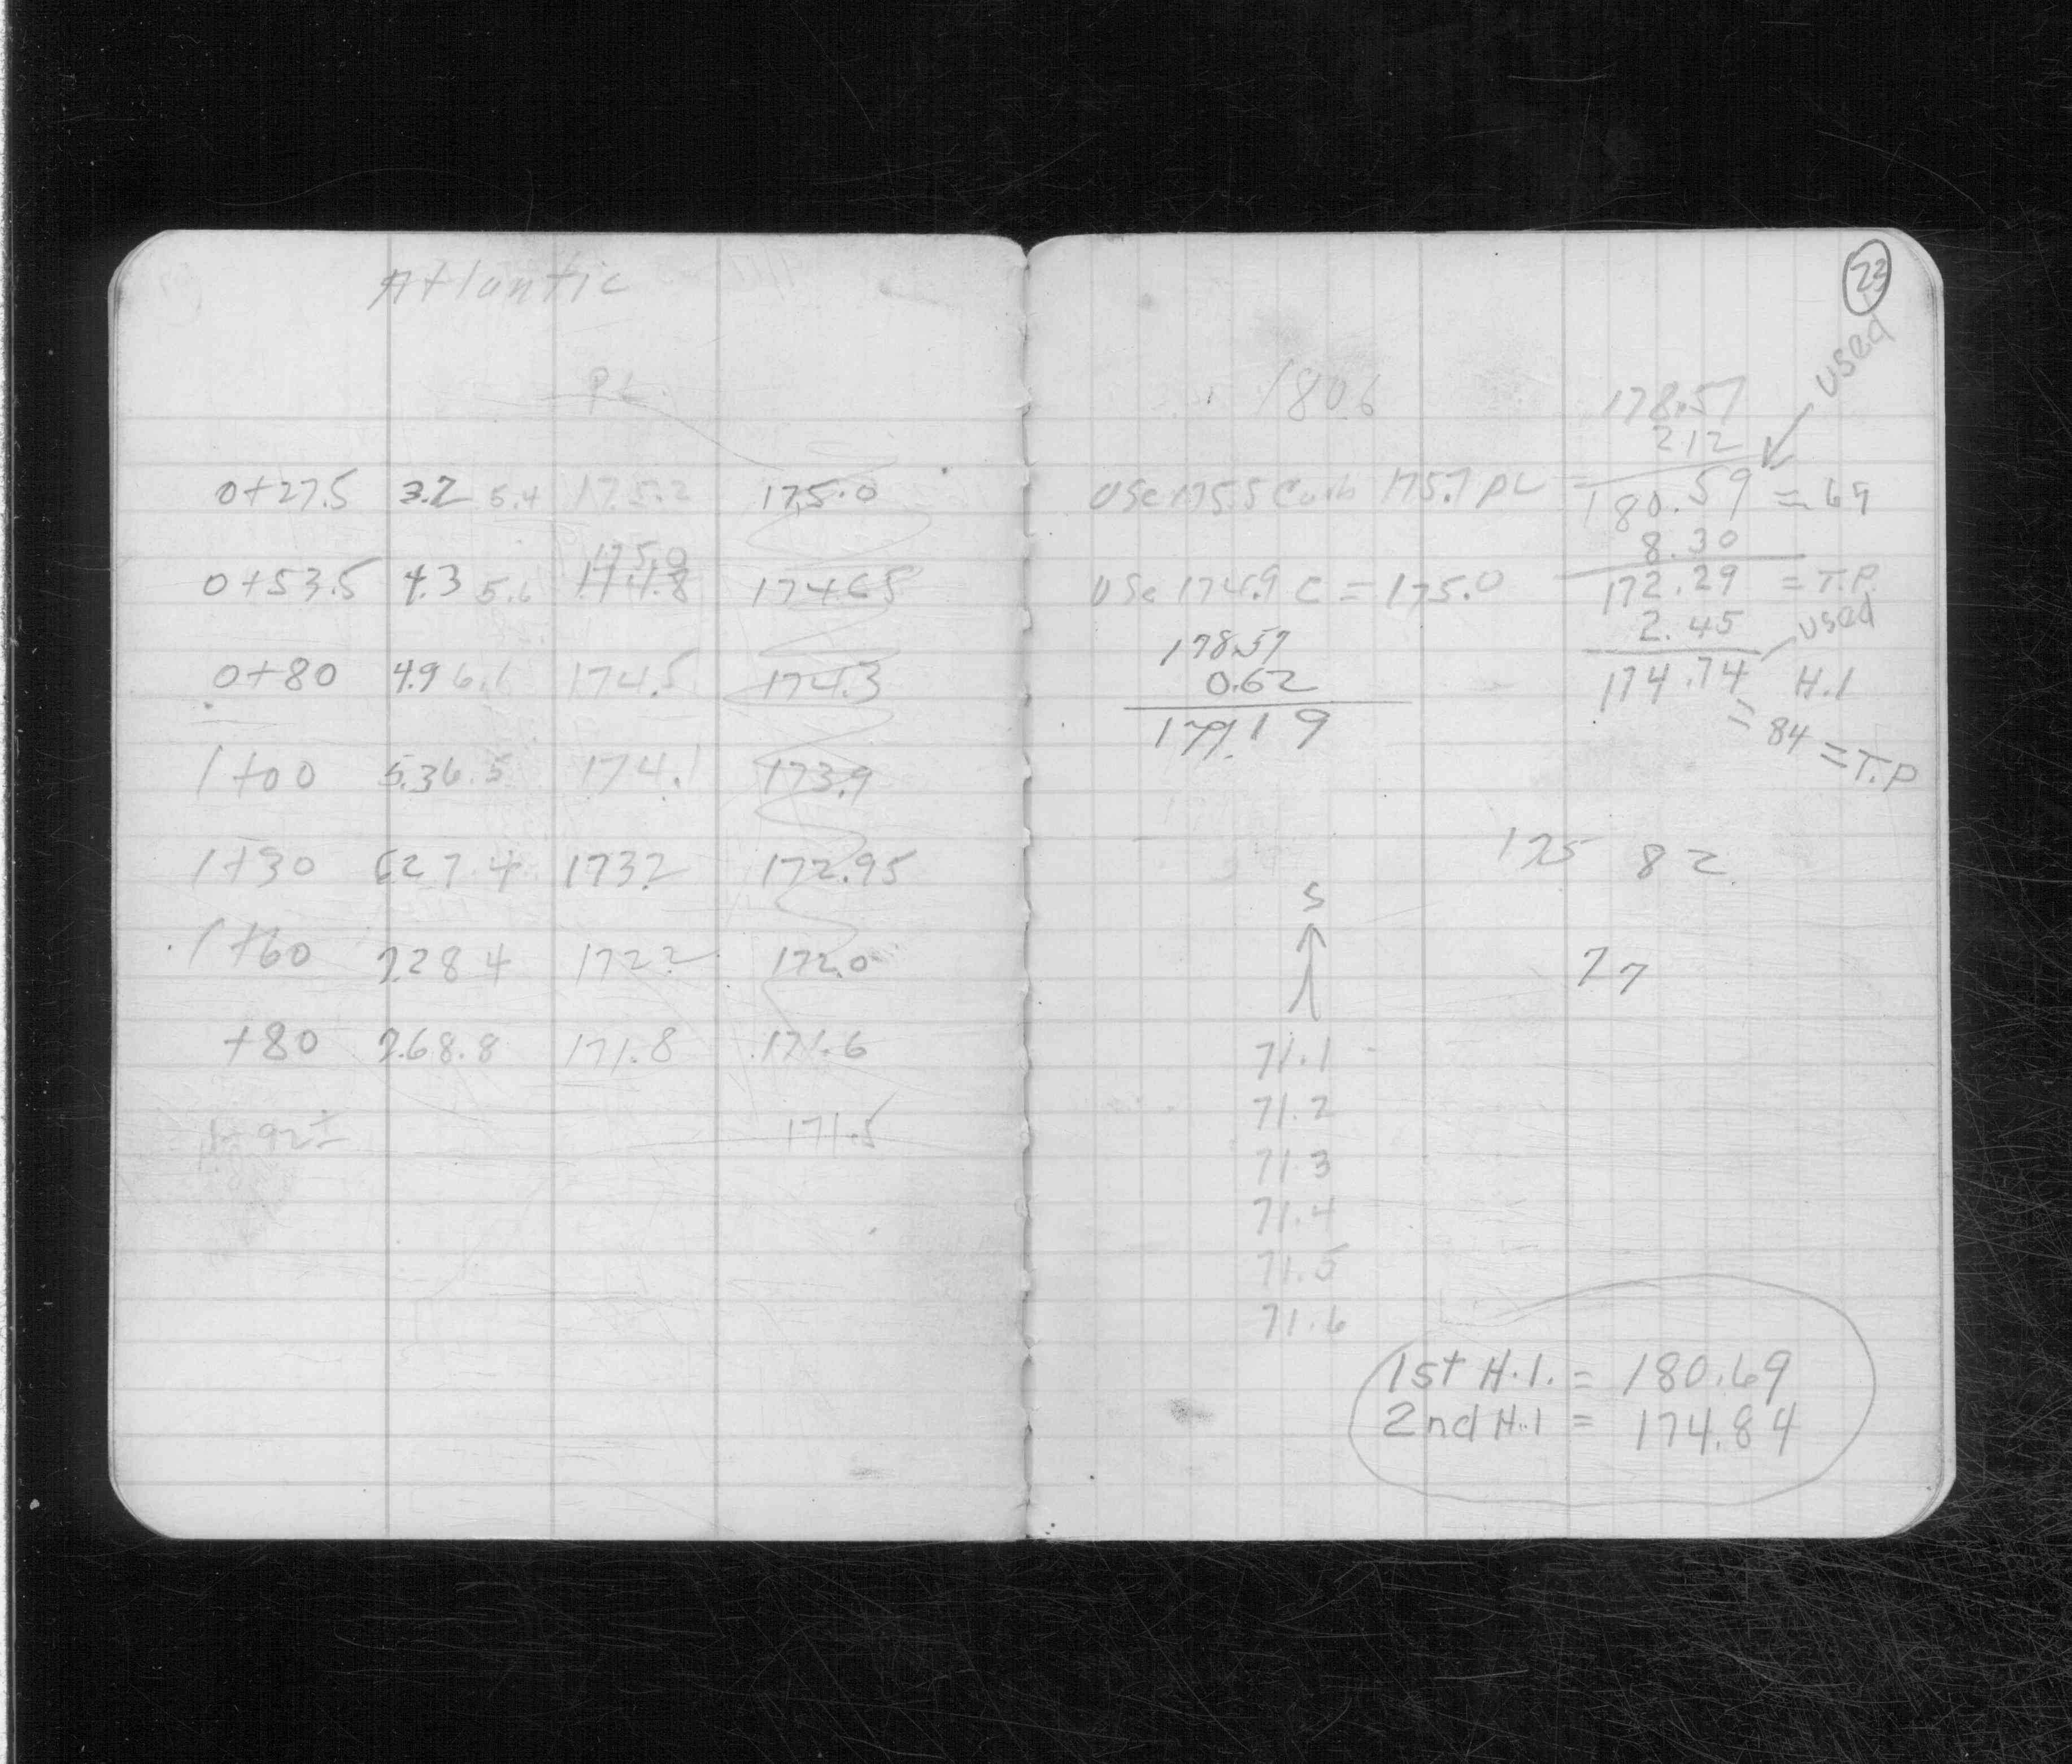 Atlantic
PL
0+27.5 3.2 5.4 175.2 175.0
175.0
0+53.5 4.3 5.6 174.8 174.65
0+80 4.9 6.1 174.5 174.3
1+00 5.3 6.5 174.1 173.9
1+30 6.2 7.4 173.2 172.95
1+60 7.2 8.4 172.2 172.0
+80 7.6 8.8 171.8 171.6
1+92± 171.5
23
used
180.6
178.57
2.12
Use 175.5 Curb 175.7 PL
180.59 = 69
8.30
Use 174.9 C = 175.0
172.29 = T.P.
2.45 used
174.74 H.I
= 84 = T.P
178.57
0.62
179.19
175 82
S
77
71.1
71.2
71.3
71.4
71.5
71.6
1st H.I. = 180.69
2nd H.I = 174.84